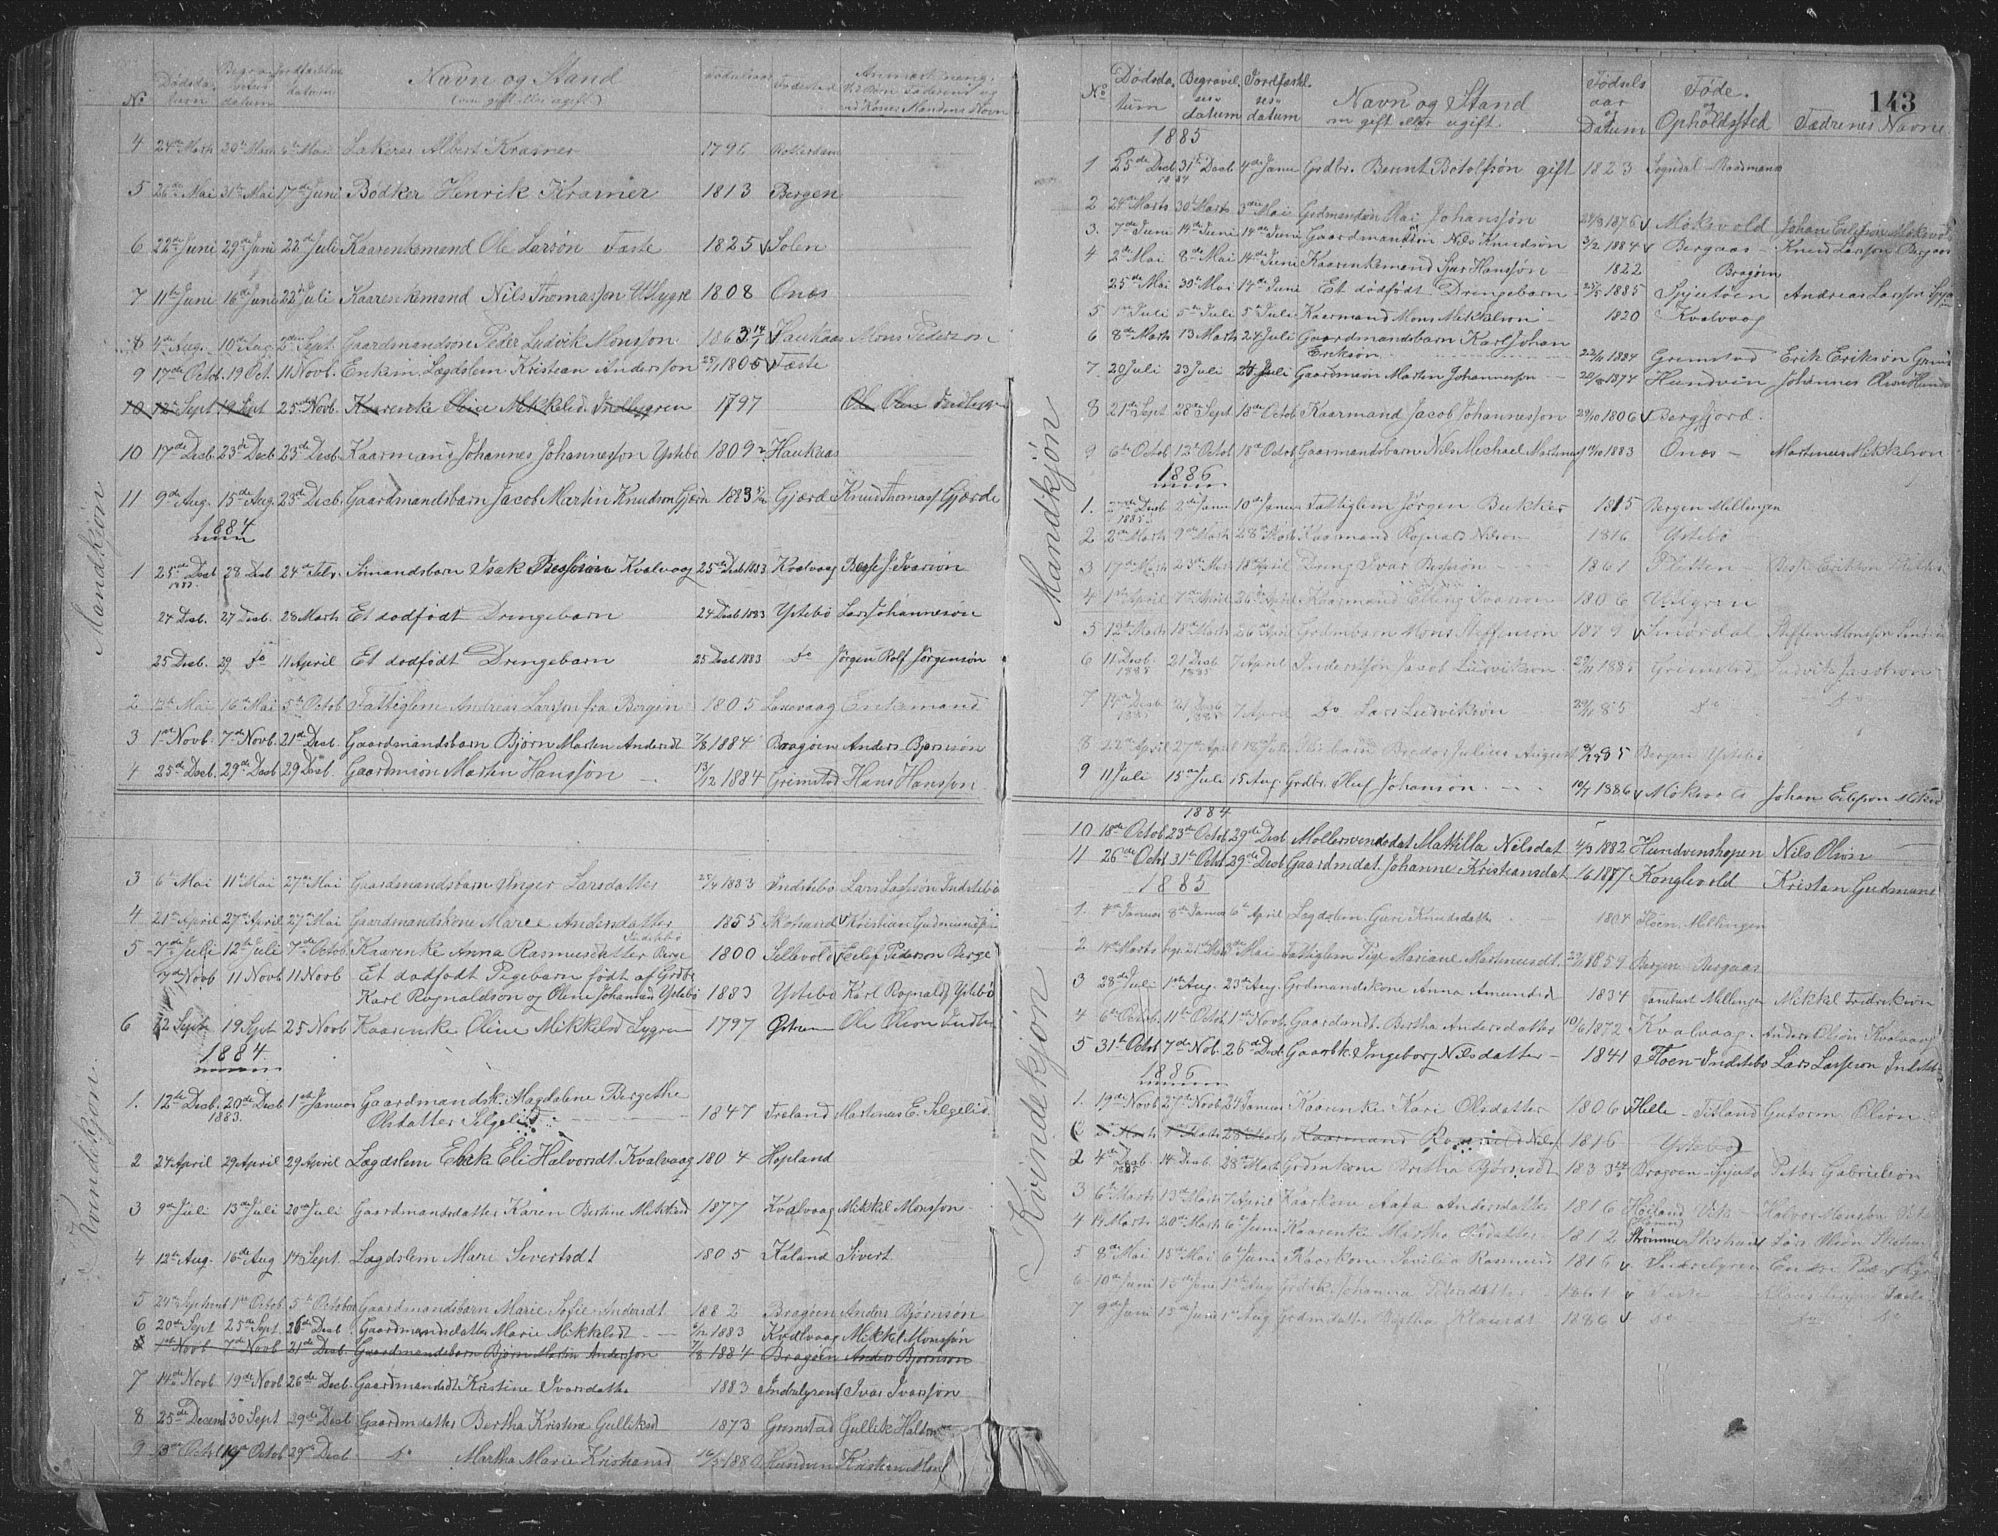 No Dødsda- tum Begra- velses datum Jordfæstelse datum Navn og Stand (om gift eller ugift) Fødselsaar Fødested Anmærkning. Ved Børn Faderens og ved Koner Mandens Navn
Mandkjøn
4 24de Marts 30te Marts Mai Lakerer Albert Kramer 1796 Rotterdam
5 26de Mai 31te Mai 17de Juni Bødker Henrik Kramer 1813 Bergen
6 22de Juni 29de Juni 22de Juli Kaarenkemand Ole Larsøn Fæste 1825 v Solen
7 11te Juni 16de Juni 22de Juli Kaarenkemand Nils Thomassøn Lygre 1808 Onæs
8 4de Aug. 10de Aug. 2den Sept. Gaardmandsøn Peder Ludvik Monssøn 1863 14/1 v Haukaas Mons Pederson
9 17de Octb. 19 Oct. 11 Novb. Enkem. Lægdslem Kristian Anderssøn 25/1 1805 v Fæste
10 12te Sept 19 Sept 25de Novb Kaarenke Oline Mikkelsd. Indlygren 1797 Ole Olsen Indlygren
10 17de Desb 23de Desb 23de Desb. Kaarmand Johannes Johannesson Ystebø 1809 Haukaas
11 9de Aug. 15de Aug. 23de Desb. Gaardmandsbarn Jacob Martin Knudson Gjærde 1883 Gjærde Knud Thomass Gjærde
1884
1 25de Desb 28 Desb 24de Febr. Sømandsbarn Isak Bessøn Kvalvaag 25de Desb 1883 Kvalvaag Besse J Ivarson
24 Desb. 27 Desb. 28 Marts Et dødfødt Drengebarn 24 Desb 1883 Ystebø Lars Johannesøn
25 Desb. 29 Do 11 April Et dødfødt Drengebarn 25 Desb 1883 Do Jørgen Rolf Jørgensøn
2 Mai 16de Mai 5te Octob Fattiglem Andreas Larssøn fra Bergen 1805 Laxevaag Enkemand
3 1ste Novb. 7de Novb. 21de Desb. Gaardmandsbarn Bjørn Martin Andersst 7/8 1884 Bragøen Anders Bjørnsøn
4 25de Desb. 29de Desb 29 Desb. Gaardmsøn Martin Hanssøn 13/12 1884 Grimstad Hans Hanssøn
Kvindekjøn.
3 6te Mai 11te Mai 27de Mai Gaardmandsbarn Inger Larsdatter 25/4 1883 Indstebø Lars Larssøn Indstebø
4 21de April 27de April 27de Mai Gaardmandskone Maree Andersdatter 1855 Skotand Kristian Gudmunds
5 7de Juli 12te Juli 7de Octob Kaarenke Anna Rasmusdatter Berge Indstebø 1800 Sellevold Eilef Pederson Berge
7de Novb 11 Novb 11 Novb Et dødfødt Pigebarn født af Grdbr.
Karl Rognaldson og Oline Johannsd Ystebø 1883 Ystebø Karl Rognalds Ystebø
6 12 Septr 19 Sept 25 Novb Kaarenke Oline Mikkelsd Lygren 1797 Ole Olson Indly
1884
1. 12te Desb. 1883. 20de Desb 1ste Januar Gaardmandsk. Magdalene Bergethe
Olsdatter Selgelid 1847 Freland Martenus E. Selgelid
2 24 April 29 April 29 April Lægdslem Enke Eli Halvorsdt Kvalvaag 1804 Hopland
3 9de Juli 13de Juli 20de Juli Gaardmandsdatter Karen Bertine Mikkelsd 1877 Kvalvaag Mikkel Monssøn
4 12te Aug. 16de Aug 14 Sept. Lægdslem Mari Sivertsdt 1805 Kaland Sivert.
5 24de September 1ste Octob 5te October Gaardmandsbarn Marie Sofie Andersdt. 1882 Bragøen Anders Bjørnson
6 20de Sept 25de Sept. 26de Desb Gaardmandsdatter Marie Mikkelsdt 1883 Kvalvaag Mikkel Monssøn
1ste Novb 7de Novb 21de Desb. Gaardmandsbarn Bjørn Martin Andersson 7/8 1884 Bragøen Anders Bjørnson
7 14de Novb 19de Novb 26de Desb Gaardmandsdt Kristine Ivarsdatter 1883 Indrelygren Ivar Ivarssøn
8 25de Decemb 30 Sept 29de Desb Gaardmdatter Bertha Kristine Gulliksd 1873 Grimstad Gullik Haldor
9 3de Octbr 19de Octob 29de Desb Do Martha Marie Kristiansd 16/5 1880 Hundven Kristian Mons
143
No Dødsda- tum Begravel- ses datum Jordfæstel- ses datum Navn og Stand om gift eller ugift. Fødsels aar og Datum Føde- og Opholdssted Fædrenes Navne
Mandkjøn
1885
1 25de Desb 1884 31te Desb 4de Janu Grdbr. Bernt Botolfsøn gift 1823 Sogndal - Raadmann
2 24de Marts 30te Marts 3die Mai Grdmandsøn Olai Johanssøn 24/8 1876 v Mokevold Johan Eilefson Mokevold
3. 7de Juni 14de Juni 14de Juni Gaardmandssøn Nils Knudsøn 2/2 1884 v Bergaas Knud Larsson Bergaas
4 2de Mai 8de Mai 14de Juni Kaarenkemand Sjur Hanssøn 1822 Bragøen
25de Mai 30te Mai 14de Juni Et dødfødt Drengebarn 25/5 1885 Spjutøen Andreas Larsson Spju
5 1ste Juli 5te Juli 5 Juli Kaarmand Mons Mikkelson 1820 Kvalvaag
6 8de Marts 13 Marts 24 Juli Gaardmandsbarn Karl Johan
Erikson 22/11 1884 Gremstad Erik Eriksøn Grim
7. 20 Juli 23 Juli 24 Juli Gaardmsøn Martin Johannessøn 20/8 1874 Hundvin Johannes Olson Hund
8 21de Sept 28de Sept 18de Octob Kaarmand Jacob Johannesson 29/10 1806 v Bergfjord.
9 6te Octob 12te Octob 18de Octob Gaarmandsbarn Nils Michael Martinus 14/10 1883 Onæs - Martinus Mikkelson
1886
1. 27de Desb 1885 2de Janu 10de Januar Fattiglem Jørgen Bukker 1815 Bergen Mellingen
2 2de Marts 9de Marts 28de Marts Kaarmand Rognald Nilson 1816 Ystebø
3 17de Marts 23de Marts 18de April Dreng Ivar Bessøn 1861 Fletten Besse Erikson
4 1ste April 7de April 26de April Kaarmand Elling Ivarson 1806 Ulvgren
5 12te Marts 18de Marts 26 April Grdmbarn Mons Steffenson 1879 v Smørdal Steffen Monsson Smørd
6 11 Desb. 1885 21 Desb 1885 7 April Inderstsøn Jacob Ludviksøn 29/11 1885 Grimstad Ludvik Jacobson
7 14de Desb 1885 21 Desb 1885 7 April Do Lars Ludviksøn 29/11 85 Do Do
8 22de April 27de April 18de Juli Pleiebarn Bredo Julius August 85 Bergen Ystebø
9 11 Juli 15de Juli 15 Aug. Grdbr. Oluf Johansøn 10/7 1886 v Mokevold Johan Eilefson Mokevold
Kvindekjøn
1884
10 18de Octob 23de Octob 29de Desb Møllersvendsdat Mathilda Nilsdat 4/3 1882 Hundvenshopen Nils Olsøn
11 26de Octb 31te Octb 29de Desb Gaardmdat. Johanne Kristiansdat 1877 Konglevold Kristan Gudmund
1885
1. 4de Januar 8de Januar 6te April Lægdslem Guri Knudsdatter 1804 Høen Mellingen
2 14de Marts bgr. 21 Marts 3die Mai Fattiglem Pige Mariane Martinusdt. 1859 Bergen Bergaas
3 28de Juli 1ste Aug. 23de Aug. Grdmandskone Anna Amundsd 1834 Mellingen Mikkel Fredriksøn
4 6te Octob. 11te Octob. 1ste Novb. Gaardmdt. Bertha Andersdatter 10/6 1872 Kvalvaag. Anders Olsøn Kvalvaag
5 31te Octb 7de Nob. 26de Desb Gaardk. Ingeborg Nilsdatter 1841 v Floen Indstebø Lars Larsson Indsteb
1886
1. 19de Novb 27de Novb 24 Januar Kaarenke Kari Olsdatter 1806 v Helle - Titland Gutorm Olsøn
2 Marts Marts 28de Marts Kaarmand Rognald Nilss 1816 Ystebø
2 4de Desb 1885 14 Desb. 28de Marts Grdmkone Bretha Bjørnsdt 1833 Bragøen - Spjutø Peter Gabrielson
3 6te Marts 13de Marts 7 April Kaarkone Aasa Andersdatter 1816 Høiland Vik - Halvor Monsson Vik
4 14 Marts 20de Marts 6te Juni Kaarenke Martha Olsdatter 1812 Strømme Skotand Lars Olsøn
5 8de Mai 15de Mai 6te Juni Kaarkone Sesilia Rasmusd 1816 v Indrelygren Endre Peders Lygr
6 10de Juni 15de Juni 1ste Aug Grdbk. Johanna Pedersdatter 1861 v Fæste Fæste
7 9de Juni 15de Juni 1ste Aug Grdmdatter Bertha Klausdt 1886 v Do Do Do